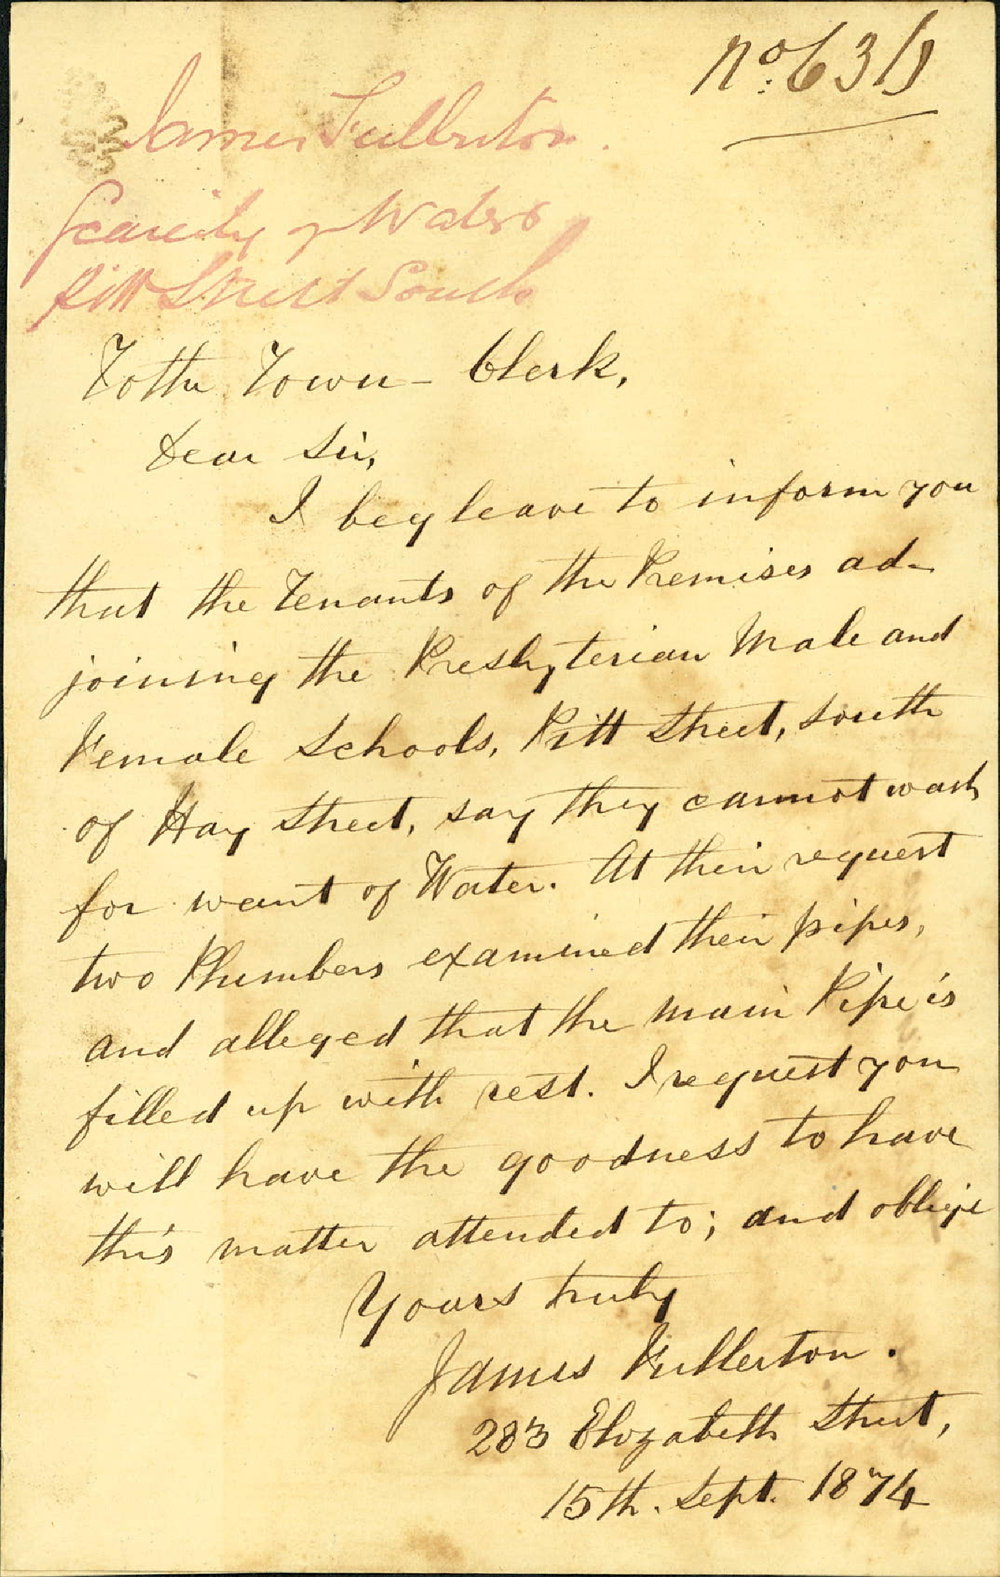 No. 631
James Fullerton.
Scarcity of Water
Pitt Street South
To the Town-Clerk,
Dear Sir,
I beg leave to inform you
that the Tenants of the Premises ad-
joining the Presbyterian Male and
Female Schools, Pitt Street, south
of Hay Street, say they cannot wash
for want of Water. At their request
two Plumbers examined their pipes,
and alleged that the main Pipe is
filled up with rest. I request you
will have the goodness to have
this matter attended to; and oblige
Yours truly
James Fullerton.
283 Elizabeth Street,
15th. Sept. 1874